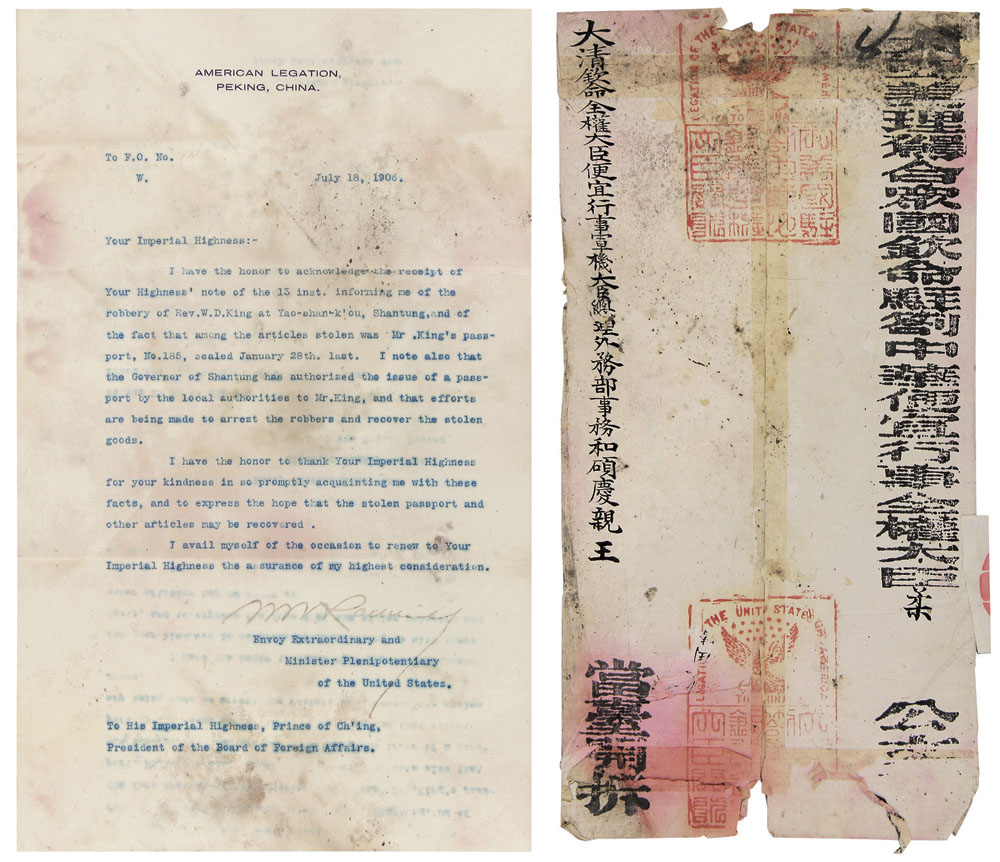 AMERICAN LEGATION,
PEKING, CHINA.
To F.O. No.
W. July 18, 1906.
Your Imperial Highness:-
I have the honor to acknowledge the receipt of
Your Highness' note of the 13 inst. informing me of the
robbery of Rev.W.D.King at Yao-shan-k'ou, Shantung,and of
the fact that among the articles stolen was Mr .King's pass-
port, No.185, sealed January 28th. last. I note also that
the Governor of Shantung has authorized the issue of a pass-
port by the local authorities to Mr.King, and that efforts
are being made to arrest the robbers and recover the stolen
goods.
I have the honor to thank Your Imperial Highness
for your kindness in so promptly acquainting me with these
facts, and to express the hope that the stolen passport and
other articles may be recovered .
I avail myself of the occasion to renew to Your
Imperial Highness the assurance of my highest consideration.
Envoy Extraordinary and
Minister Plenipotentiary
of the United States.
To His Imperial Highness, Prince of Ch'ing,
President of the Board of Foreign Affairs.
大亞美理駕合眾國欽命駐劄中華便宜行事全權大臣柔
公文
LEGATION OF THE STATES
THE UNITED STATES
大清欽命全權大臣便宜行事軍機大臣總理外務部事務和碩慶親王
當堂開拆